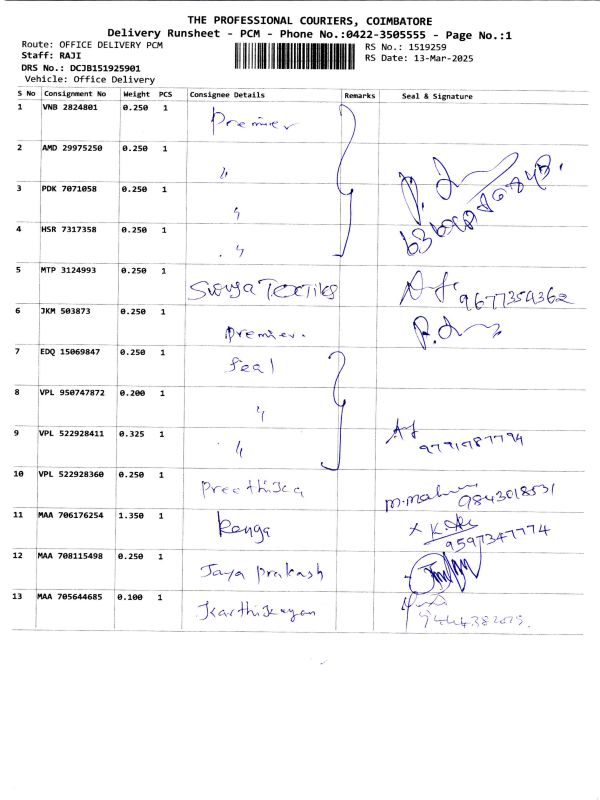 THE PROFESSIONAL COURIERS, COIMBATORE
Delivery Runsheet - PCM - Phone No.:0422-3505555 - Page No.:1
Route: OFFICE DELIVERY PCM
RS No.: 1519259
Staff: RAJI
RS Date: 13-Mar-2025
DRS No.: DCJB151925901
Vehicle: Office Delivery
S No Consignment No Weight PCS Consignee Details Remarks Seal & Signature
1 VNB 2824801 0.250 1 Premier
2 AMD 29975250 0.250 1 "
3 PDK 7071058 0.250 1 "
4 HSR 7317358 0.250 1 "
5 MTP 3124993 0.250 1 Surya Textiles 9677359362
6 JKM 503873 0.250 1 Premier.
7 EDQ 15069847 0.250 1 Seal
8 VPL 950747872 0.200 1 "
9 VPL 522928411 0.325 1 " 9791987794
10 VPL 522928360 0.250 1 Preethika 9843018531
11 MAA 706176254 1.350 1 Renga 9597347774
12 MAA 708115498 0.250 1 Jaya prakash
13 MAA 705644685 0.100 1 Karthikeyan